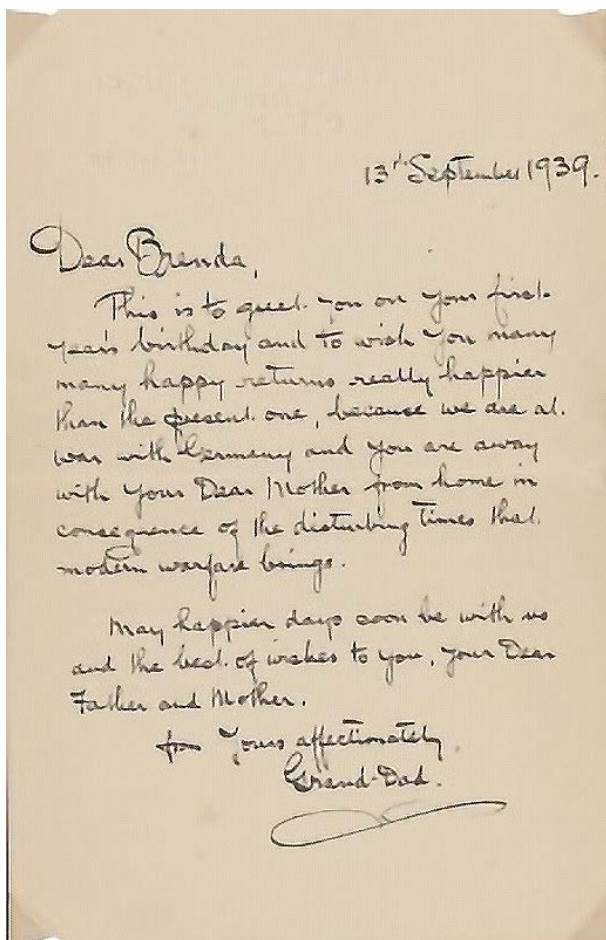 13th September 1939.
Dear Brenda,
This is to greet you on your first
year's birthday and to wish you many
many happy returns really happier
than the present one, because we are at
war with Germany and you are away
with your Dear Mother from home in
consequence of the disturbing times that
modern warfare brings.
May happier days soon be with us
and the best of wishes to you, your Dear
Father and Mother.
from Yours affectionately
Grand-Dad.